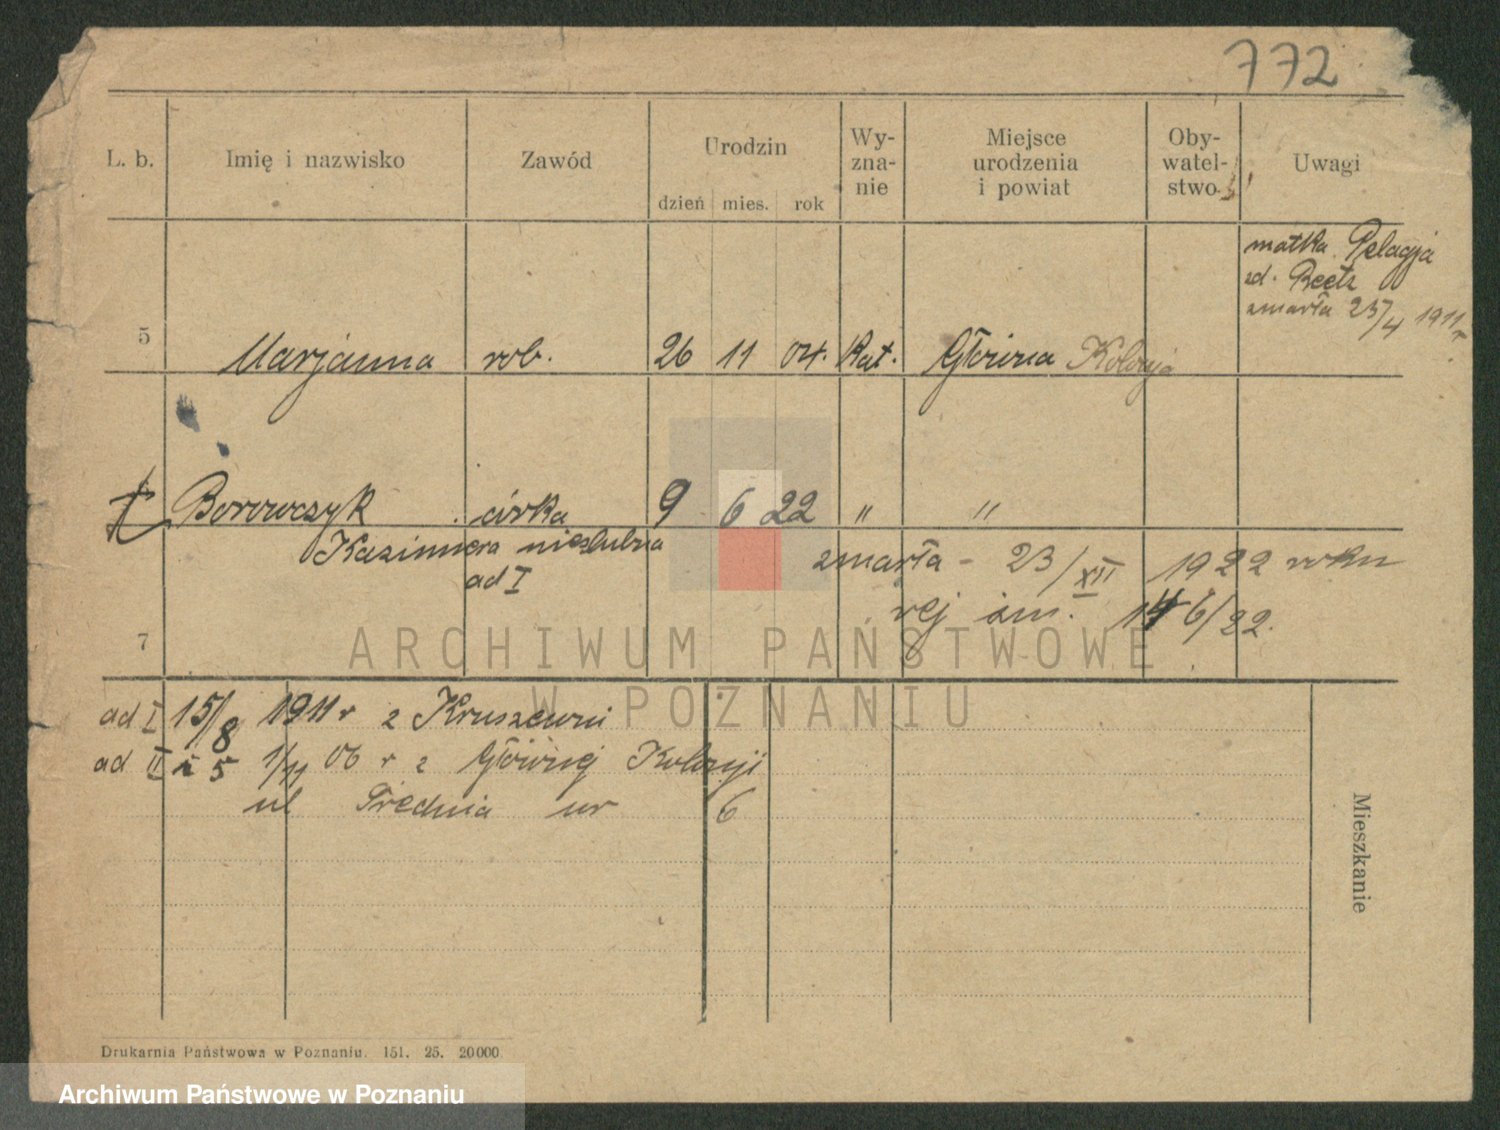 772
L. b.
Imię i nazwisko
Zawód
Urodzin
dzień mies. rok
Wy-
zna-
nie
Miejsce
urodzenia
i powiat
Oby-
watel-
stwo
Uwagi
matka Pelagja
zd. Reetz
zmarła 23/4 1911 r
5 Marjanna rob. 26 11 04. Kat. Główna Kolonja
Borowczyk córka 9 6 22 " "
Kazimiera nieślubna
ad I
zmarła - 23/XII 1922 roku
rej zm. 146/22.
7
ad I 15/8 1911 r z Kruszewni
ad II i 5 1/11 06 r z Głównej Kolonji
ul Średnia nr 6
Mieszkanie
Drukarnia Państwowa w Poznaniu. 151. 25. 20000.
ARCHIWUM PAŃSTWOWE
W POZNANIU
Archiwum Państwowe w Poznaniu